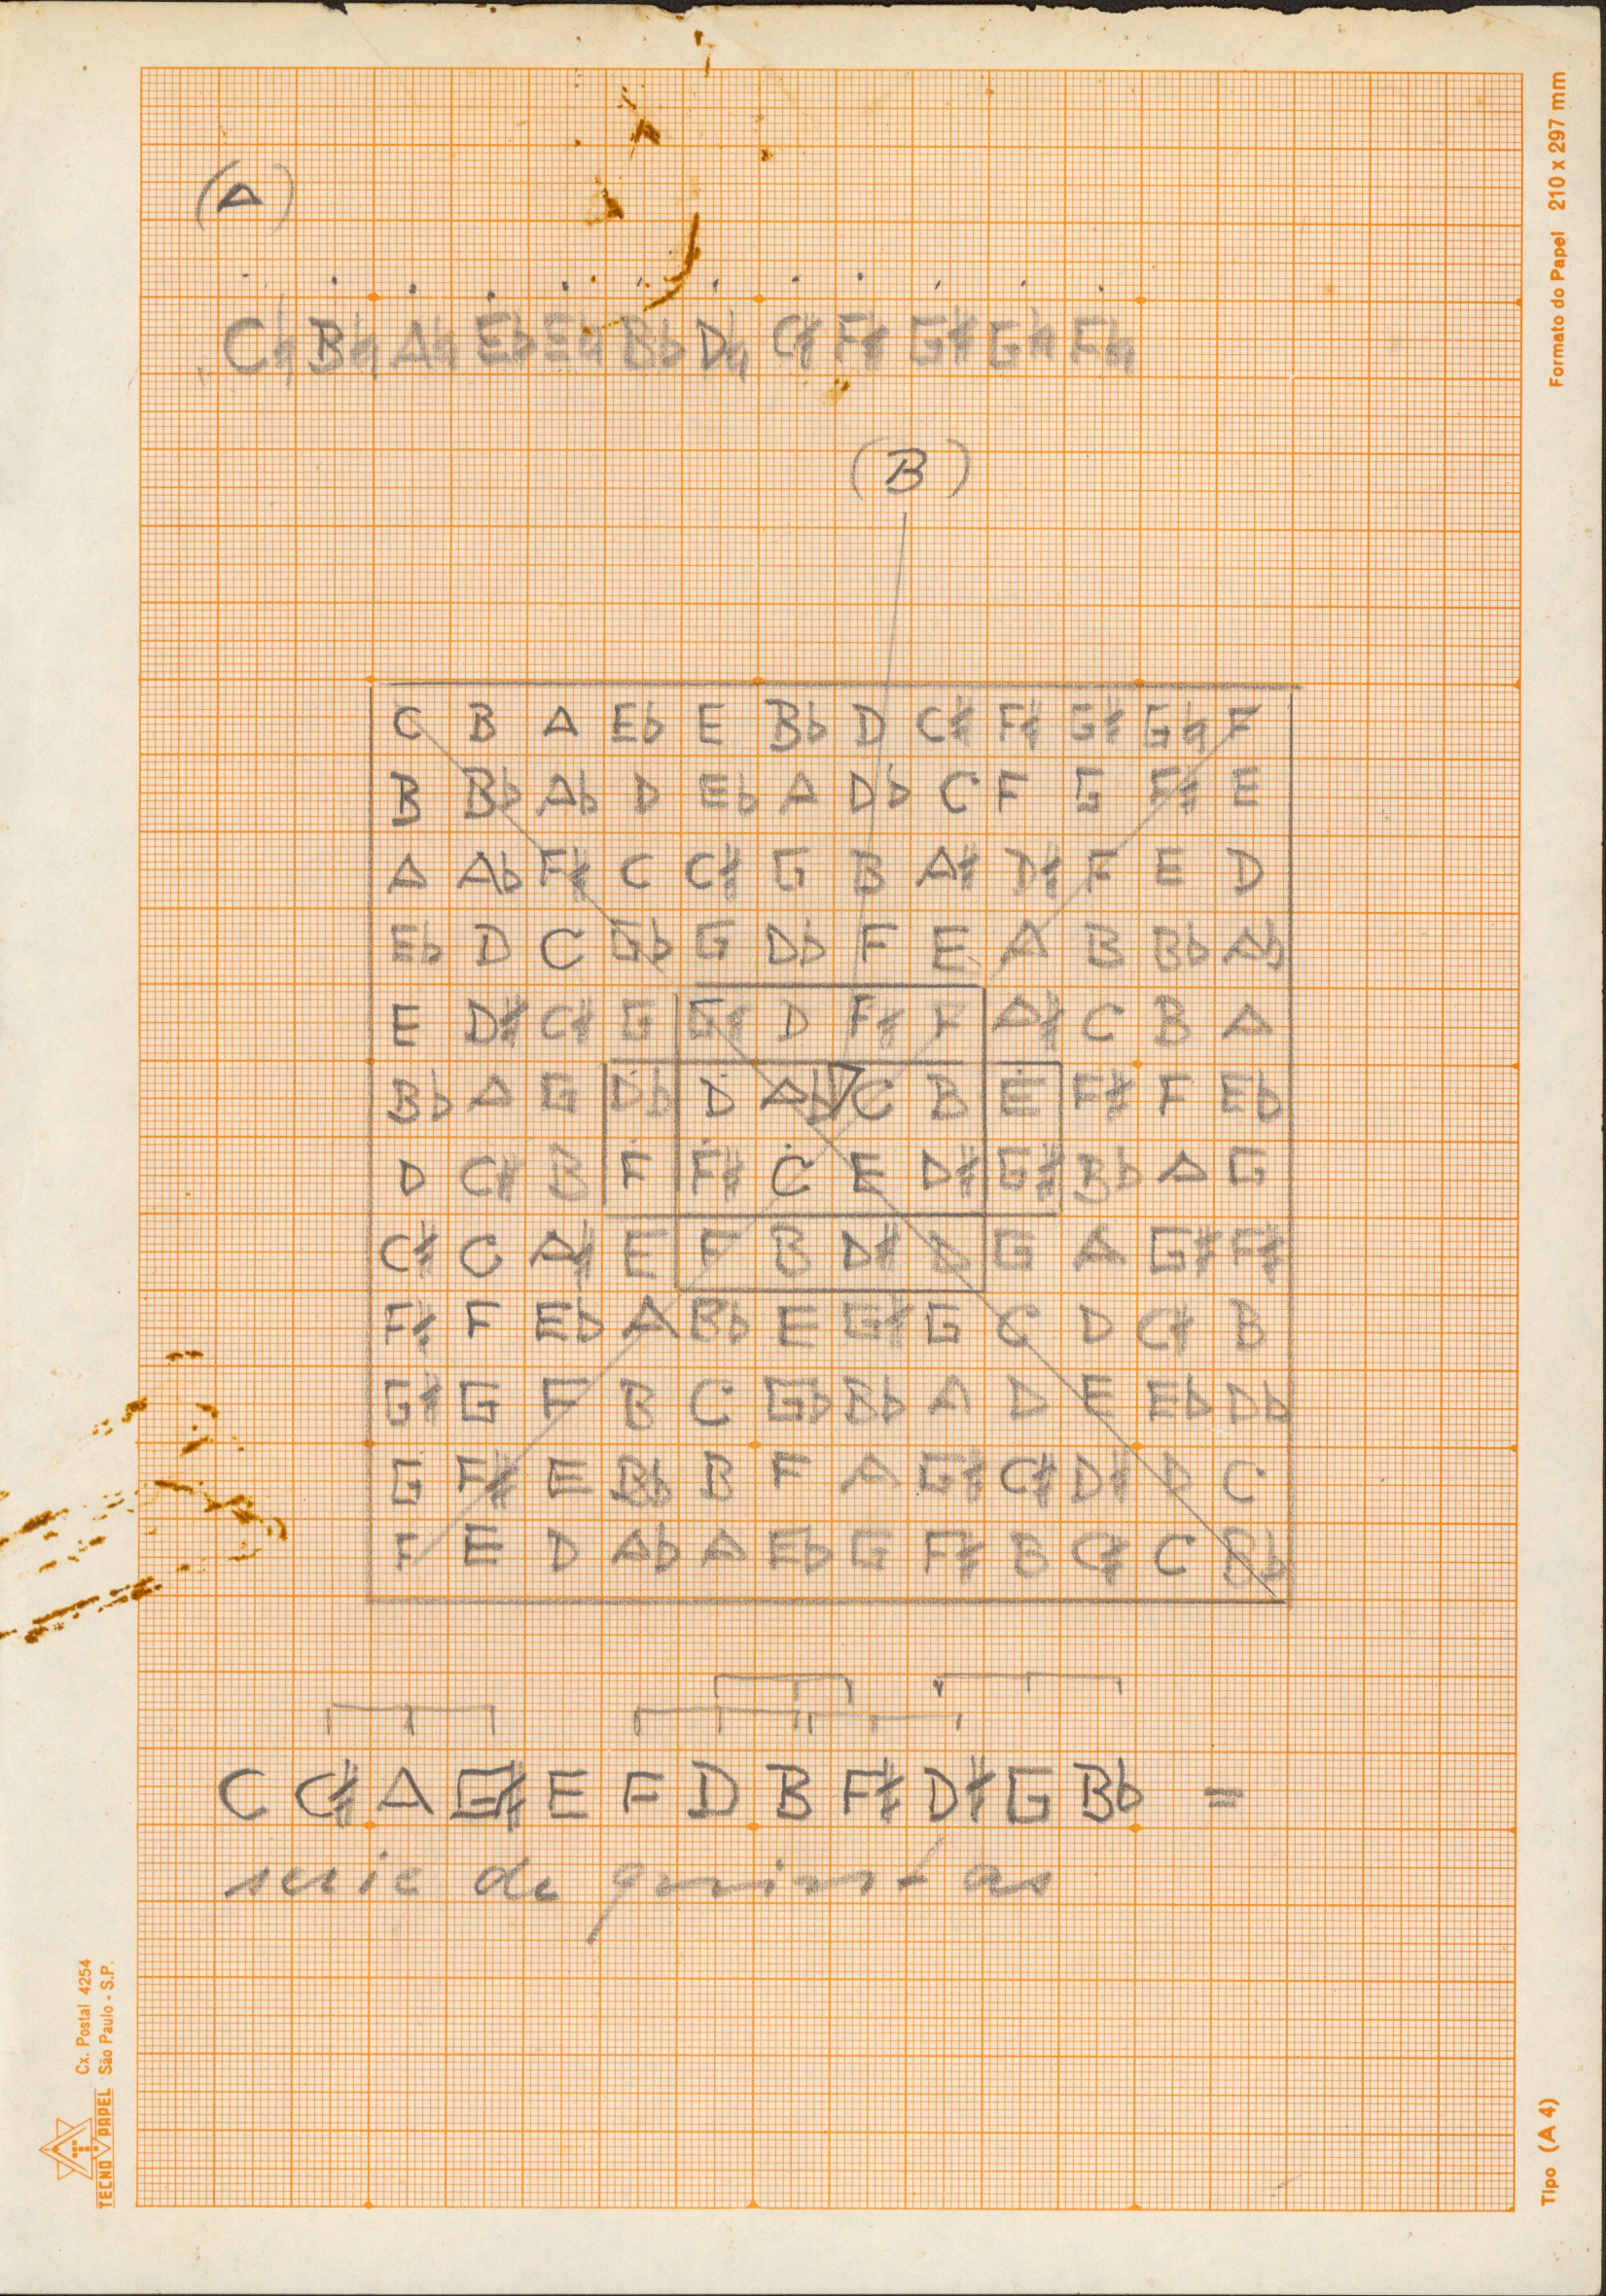 (A)
C♮ B♮ A♮ E♭ E♮ B♭ D♮ C# F# G# G♮ F♮
(B)
C B A E♭ E B♭ D C# F# G# G♮ F
B B♭ A♭ D E♭ A D♭ C F G F# E
A A♭ F# C C# G B A# D# F E D
E♭ D C G♭ G D♭ F E A B B♭ A♭
E D# C# G G# D F# F A# C B A
B♭ A G D♭ D A♭ C B E F# F E♭
D C# B F F# C E D# G# B♭ A G
C# C A# E F B D# D G A G# F#
F# F E♭ A B♭ E G# G C D C# B
G# G F B C G♭ B♭ A D E E♭ D♭
G F# E B♭ B F A G# C# D# D C
F E D A♭ A E♭ G F# B C# C B♭
C C# A G# E F D B F# D# G B♭ =
serie de quintas
Formato do Papel 210 x 297 mm
Tipo (A 4)
TECNO PAPEL
Cx. Postal 4254
São Paulo - S.P.